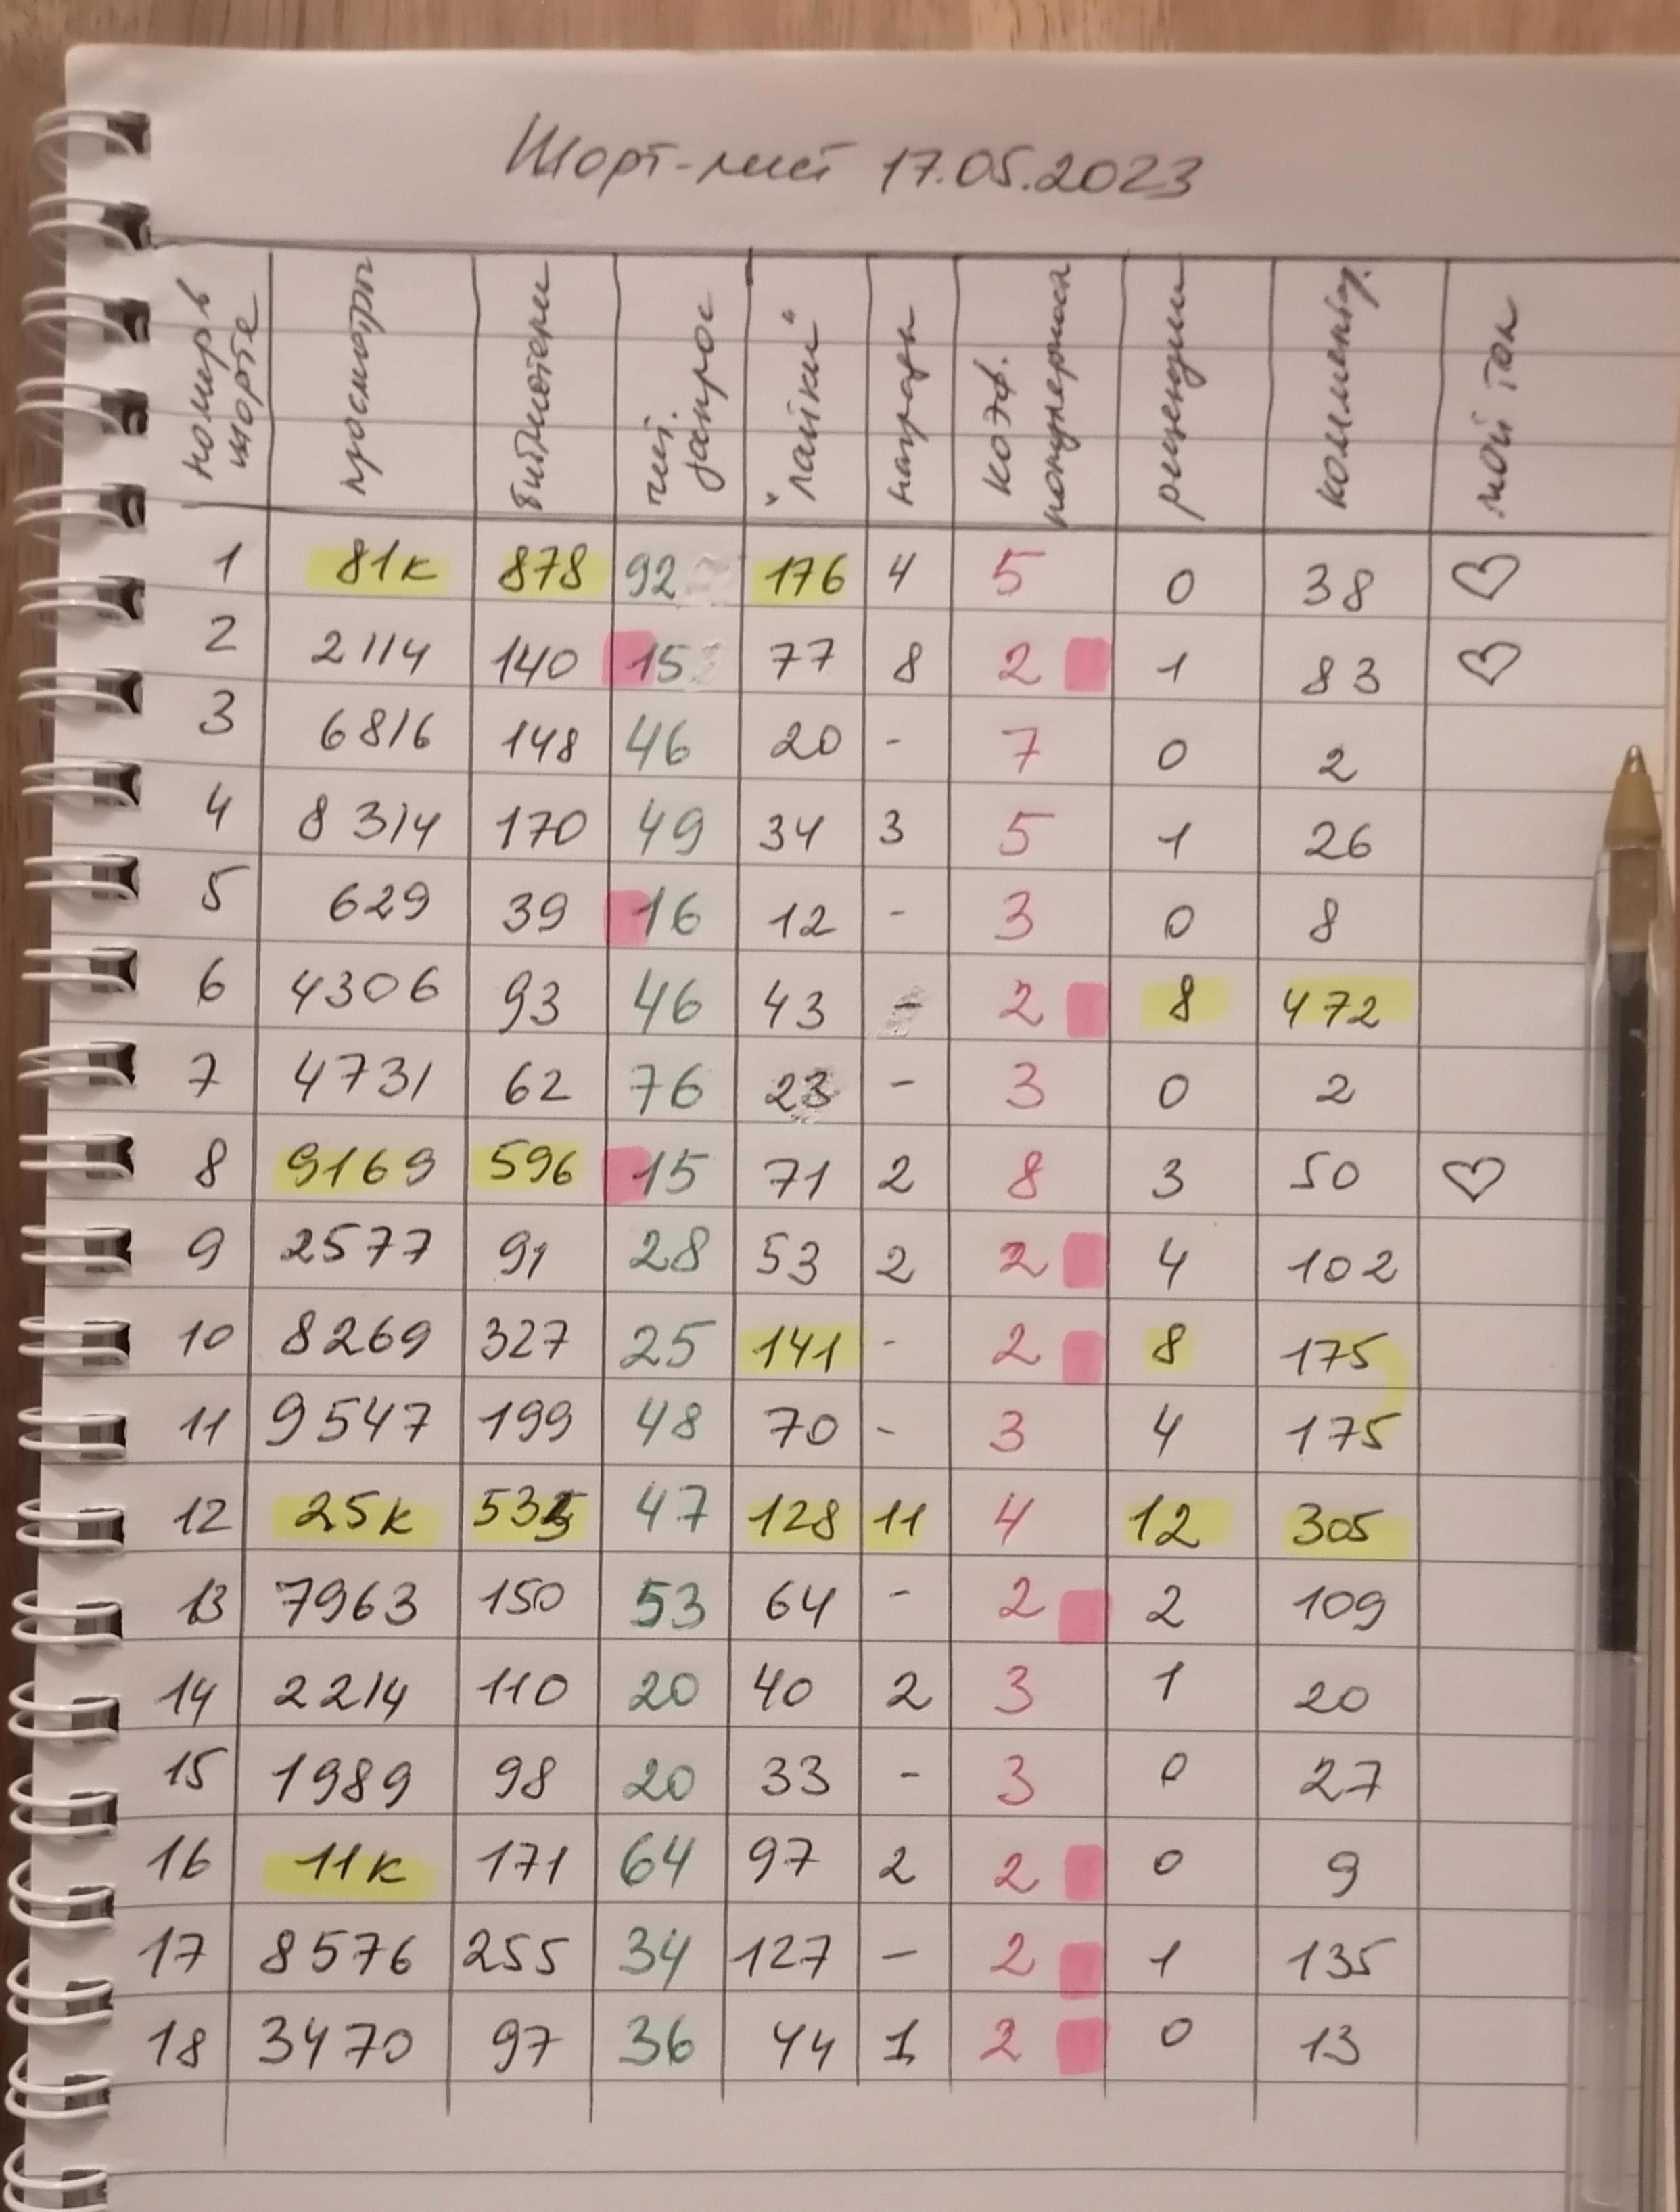 Шорт-лист 17.05.2023
номер в шорте просмотры библиотеки чит. запрос "лайки" награды коэф. популярности рецензии комментар. мой топ
1 81к 878 92 176 4 5 0 38 ♡
2 2114 140 15 77 8 2 1 83 ♡
3 6816 148 46 20 - 7 0 2
4 8314 170 49 34 3 5 1 26
5 629 39 16 12 - 3 0 8
6 4306 93 46 43 - 2 8 472
7 4731 62 76 23 - 3 0 2
8 9169 596 15 71 2 8 3 50 ♡
9 2577 91 28 53 2 2 4 102
10 8269 327 25 141 - 2 8 175
11 9547 199 48 70 - 3 4 175
12 25к 535 47 128 11 4 12 305
13 7963 150 53 64 - 2 2 109
14 2214 110 20 40 2 3 1 20
15 1989 98 20 33 - 3 0 27
16 11к 171 64 97 2 2 0 9
17 8576 255 34 127 - 2 1 135
18 3470 97 36 44 1 2 0 13